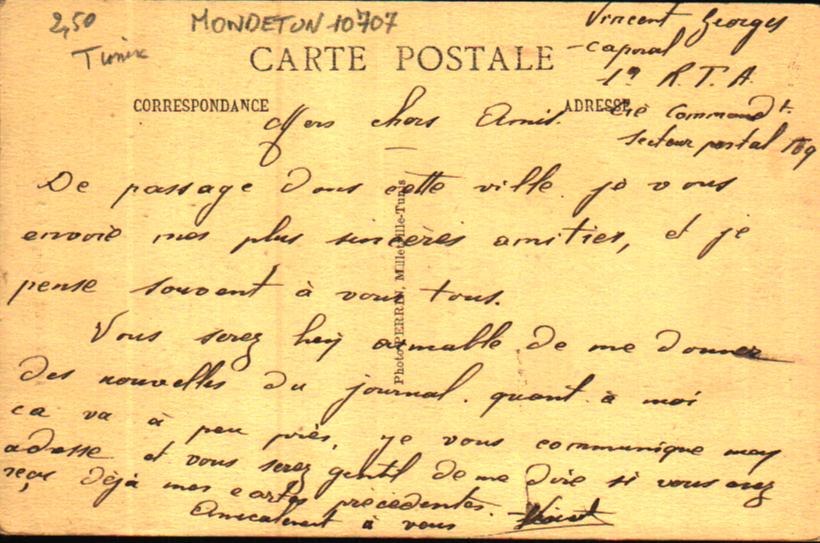 2,50
Tunix
MONDETUN 10707
Vincent Georges
CARTE POSTALE
- caporal
1er R.T.A.
CORRESPONDANCE
ADRESSE
Cie Commandt.
Secteur postal 169
Mes chers Amis.
De passage dans cette ville je vous
envoie mes plus sincères amities, et je
pense souvent à vous tous.
Vous serez aimable de me donner
des nouvelles du journal. quant à moi
ca va à peu près, je vous communique mon
adesse et vous serez gentil de me dire si vous avez
reçu déjà mes cartes précédentes.
Amicalement à vous
Photo PERRIN, Millet Tunis